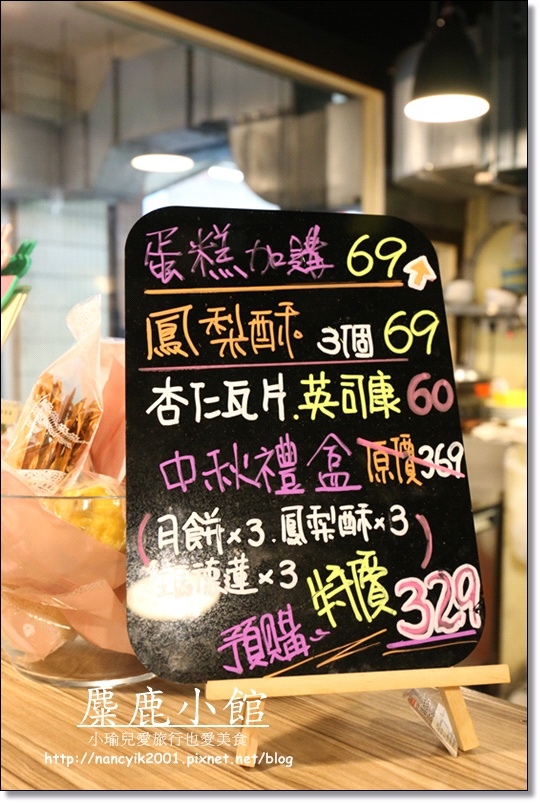 蛋糕加購 69
鳳梨酥 3個 69
杏仁瓦片.英司康 60
中秋禮盒 原價369
(月餅×3.鳳梨酥×3
德蓮×3)
特價329
預購
麋鹿小館
小瑜兒愛旅行也愛美食
http://nancyik2001.pixnet.net/blog